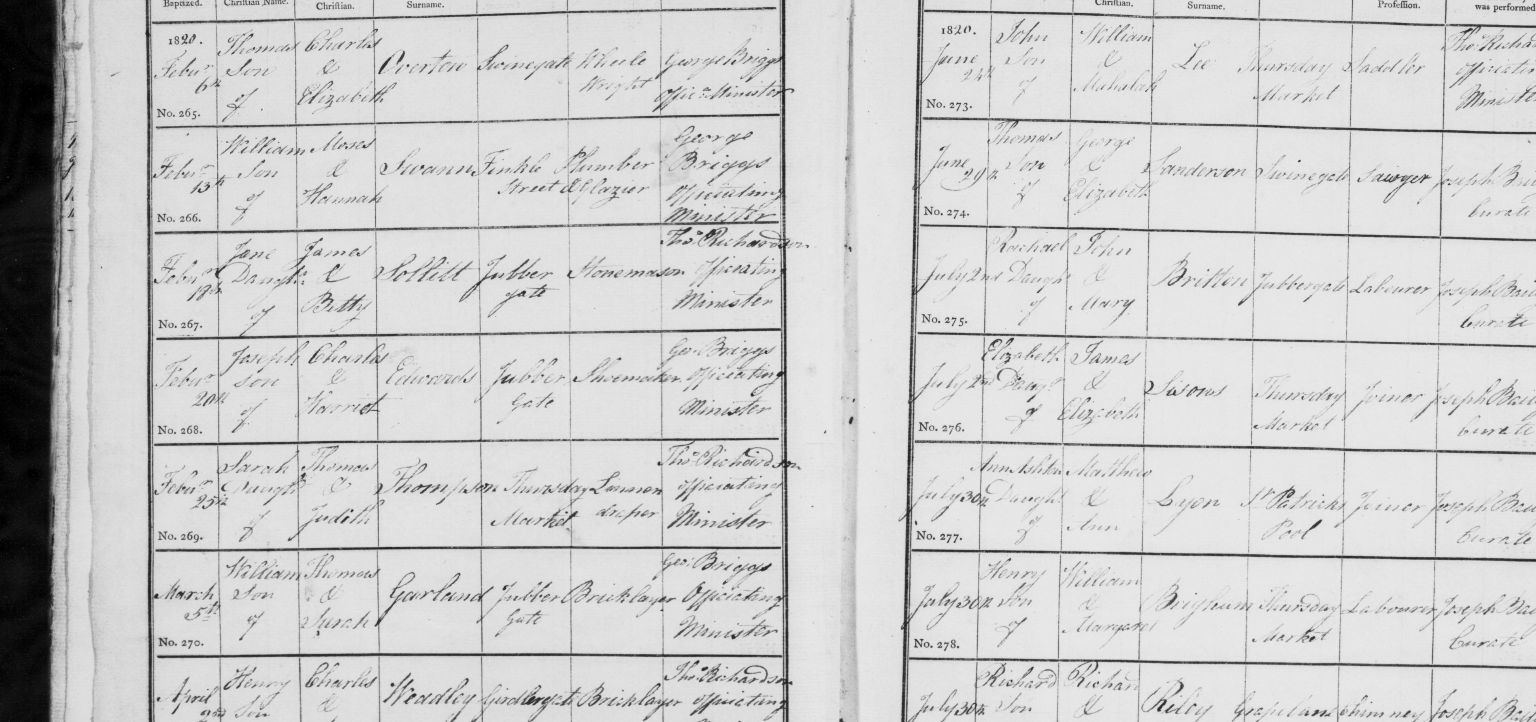 Baptized. Christian Name. Christian. Surname.
1820. Thomas Charles
Feby Son & Overton Swinegate Wheele George Briggs
6th of Elizabeth Wright Offic. Minister
No. 265.
William Moses George
Feby Son & Swann Finkle Plumber Briggs
13th of Hannah Street & Glazier Officiating
No. 266. Minister
Jane James Thos. Richardson
Feby Daught. & Sollitt Jubber Stonemason Officiating
18th of Betty gate Minister
No. 267.
Joseph Charles Geo. Briggs
Feby son & Edwards Jubber Shoemaker Officiating
20th of Harriet Gate Minister
No. 268.
Sarah Thomas Thos. Richardson
Feby Daught & Thompson Thursday Linnen officiating
25th of Judith Market draper Minister
No. 269.
William Thomas Geo. Briggs
March Son & Garland Jubber Bricklayer Officiating
5th of Sarah Gate Minister
No. 270.
Henry Charles Thos. Richardson
April Son & Weadley Girdlergate Bricklayer Officiating
2nd
Christian. Surname. Profession. was performed
1820. John William Thos. Richard
June Son & Lee Thursday Saddler officiatin
24th of Mahalah Market Ministe
No. 273.
Thomas George
June Son & Sanderson Swinegate Sawyer Joseph
29th of Elizabeth Curate
No. 274.
Rachael John
July 2nd Daugh & Britton Jubbergate Labourer Joseph
of Mary Curate
No. 275.
Elizabeth James
July 2nd Daugr & Thursday Joiner Joseph
of Elizabeth Market Curate
No. 276.
Ann Ashton Matthew
July 30th Daught & Lyon St Patricks Joiner Joseph
of Ann Pool Curate
No. 277.
Henry William
July 30th Son & Brigham Thursday Labourer Joseph
of Margaret Market Curate
No. 278.
Richard Richard
July 30th Son & Riley Grapelane chimney Joseph